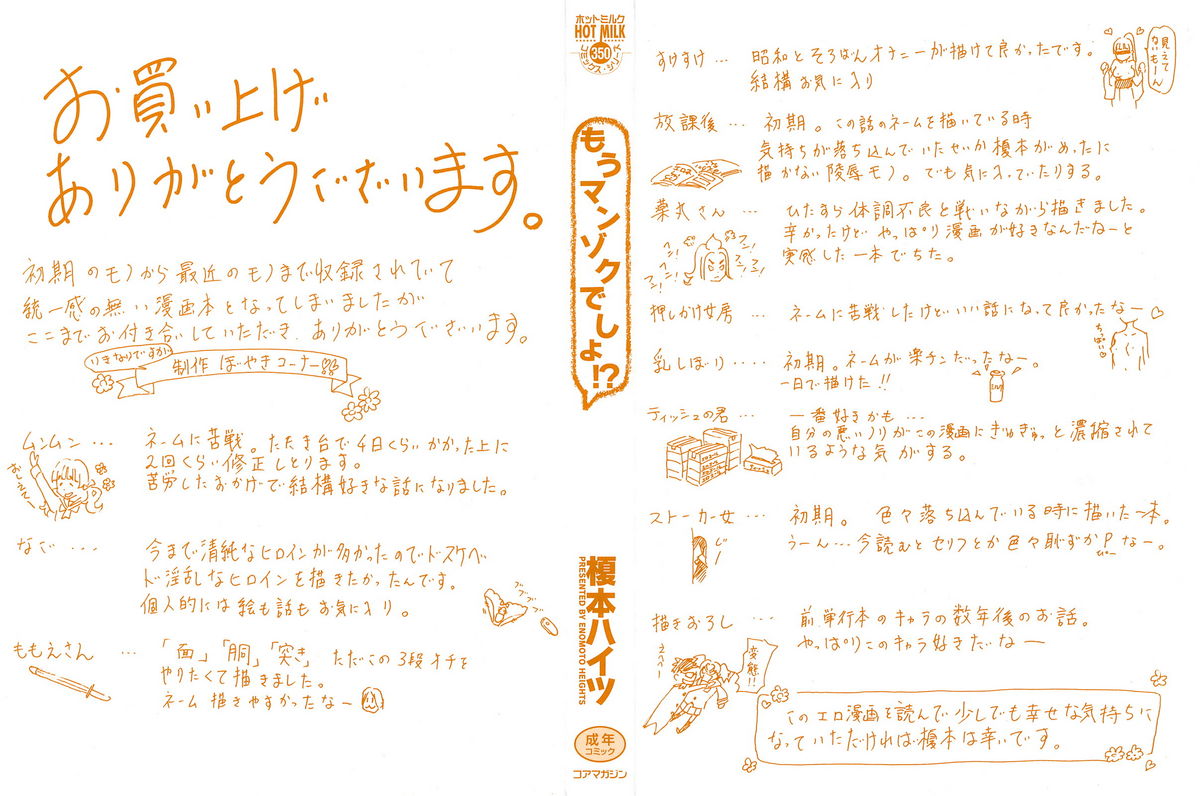 お買い上げ
ありがとうございます。
初期のモノから最近のモノまで収録されていて
統一感の無い漫画本となってしまいましたが
ここまでお付き合いしていただき、ありがとうございます。
いきなりですが
制作 ぼやきコーナー
ムンムン… ネームに苦戦。たたき台で4日くらいかかった上に
2回くらい修正しとります。
苦労したおかげで結構好きな話になりました。
なで… 今まで清純なヒロインが多かったのでドスケベ
ド淫乱なヒロインを描きたかったんです。
個人的には絵も話もお気に入り。
ブブブブ
ももえさん … 「面」「胴」「突き」ただこの3段オチを
やりたくて描きました。
ネーム描きやすかったなー
ホットミルク
HOT MILK
350
コミックス・シリーズ
もうマンゾクでしょ!?
榎本ハイツ
PRESENTED BY ENOMOTO HEIGHTS
成年
コミック
コアマガジン
すけすけ… 昭和とそろばんオナニーが描けて良かったです。
結構お気に入り
見えて
ないもーん
放課後 … 初期。この話のネームを描いている時
気持ちが落ち込んでいたせいか榎本がめったに
描かない陵辱モノ。でも気に入っていたりする。
薬丸さん … ひたすら体調不良と戦いながら描きました。
辛かったけどやっぱり漫画が好きなんだなーと
実感した一本でちた。
押しかけ女房 … ネームに苦戦したけどいい話になって良かったなー
ちっぱい
乳しぼり…. 初期。ネームが楽チンだったなー。
一日で描けた!!
ティッシュの君 … 一番好きかも…
自分の悪いノリがこの漫画にぎゅぎゅっと濃縮されて
いるような気がする。
ストーカー女 … 初期。 色々落ち込んでいる時に描いた一本。
うーん…今読むとセリフとか色々恥ずかPなー。
じー
描きおろし … 前単行本のキャラの数年後のお話。
やっぱりこのキャラ好きだなー
えへへー
変態!!
このエロ漫画を読んで少しでも幸せな気持ちに
なっていただければ榎本は幸いです。